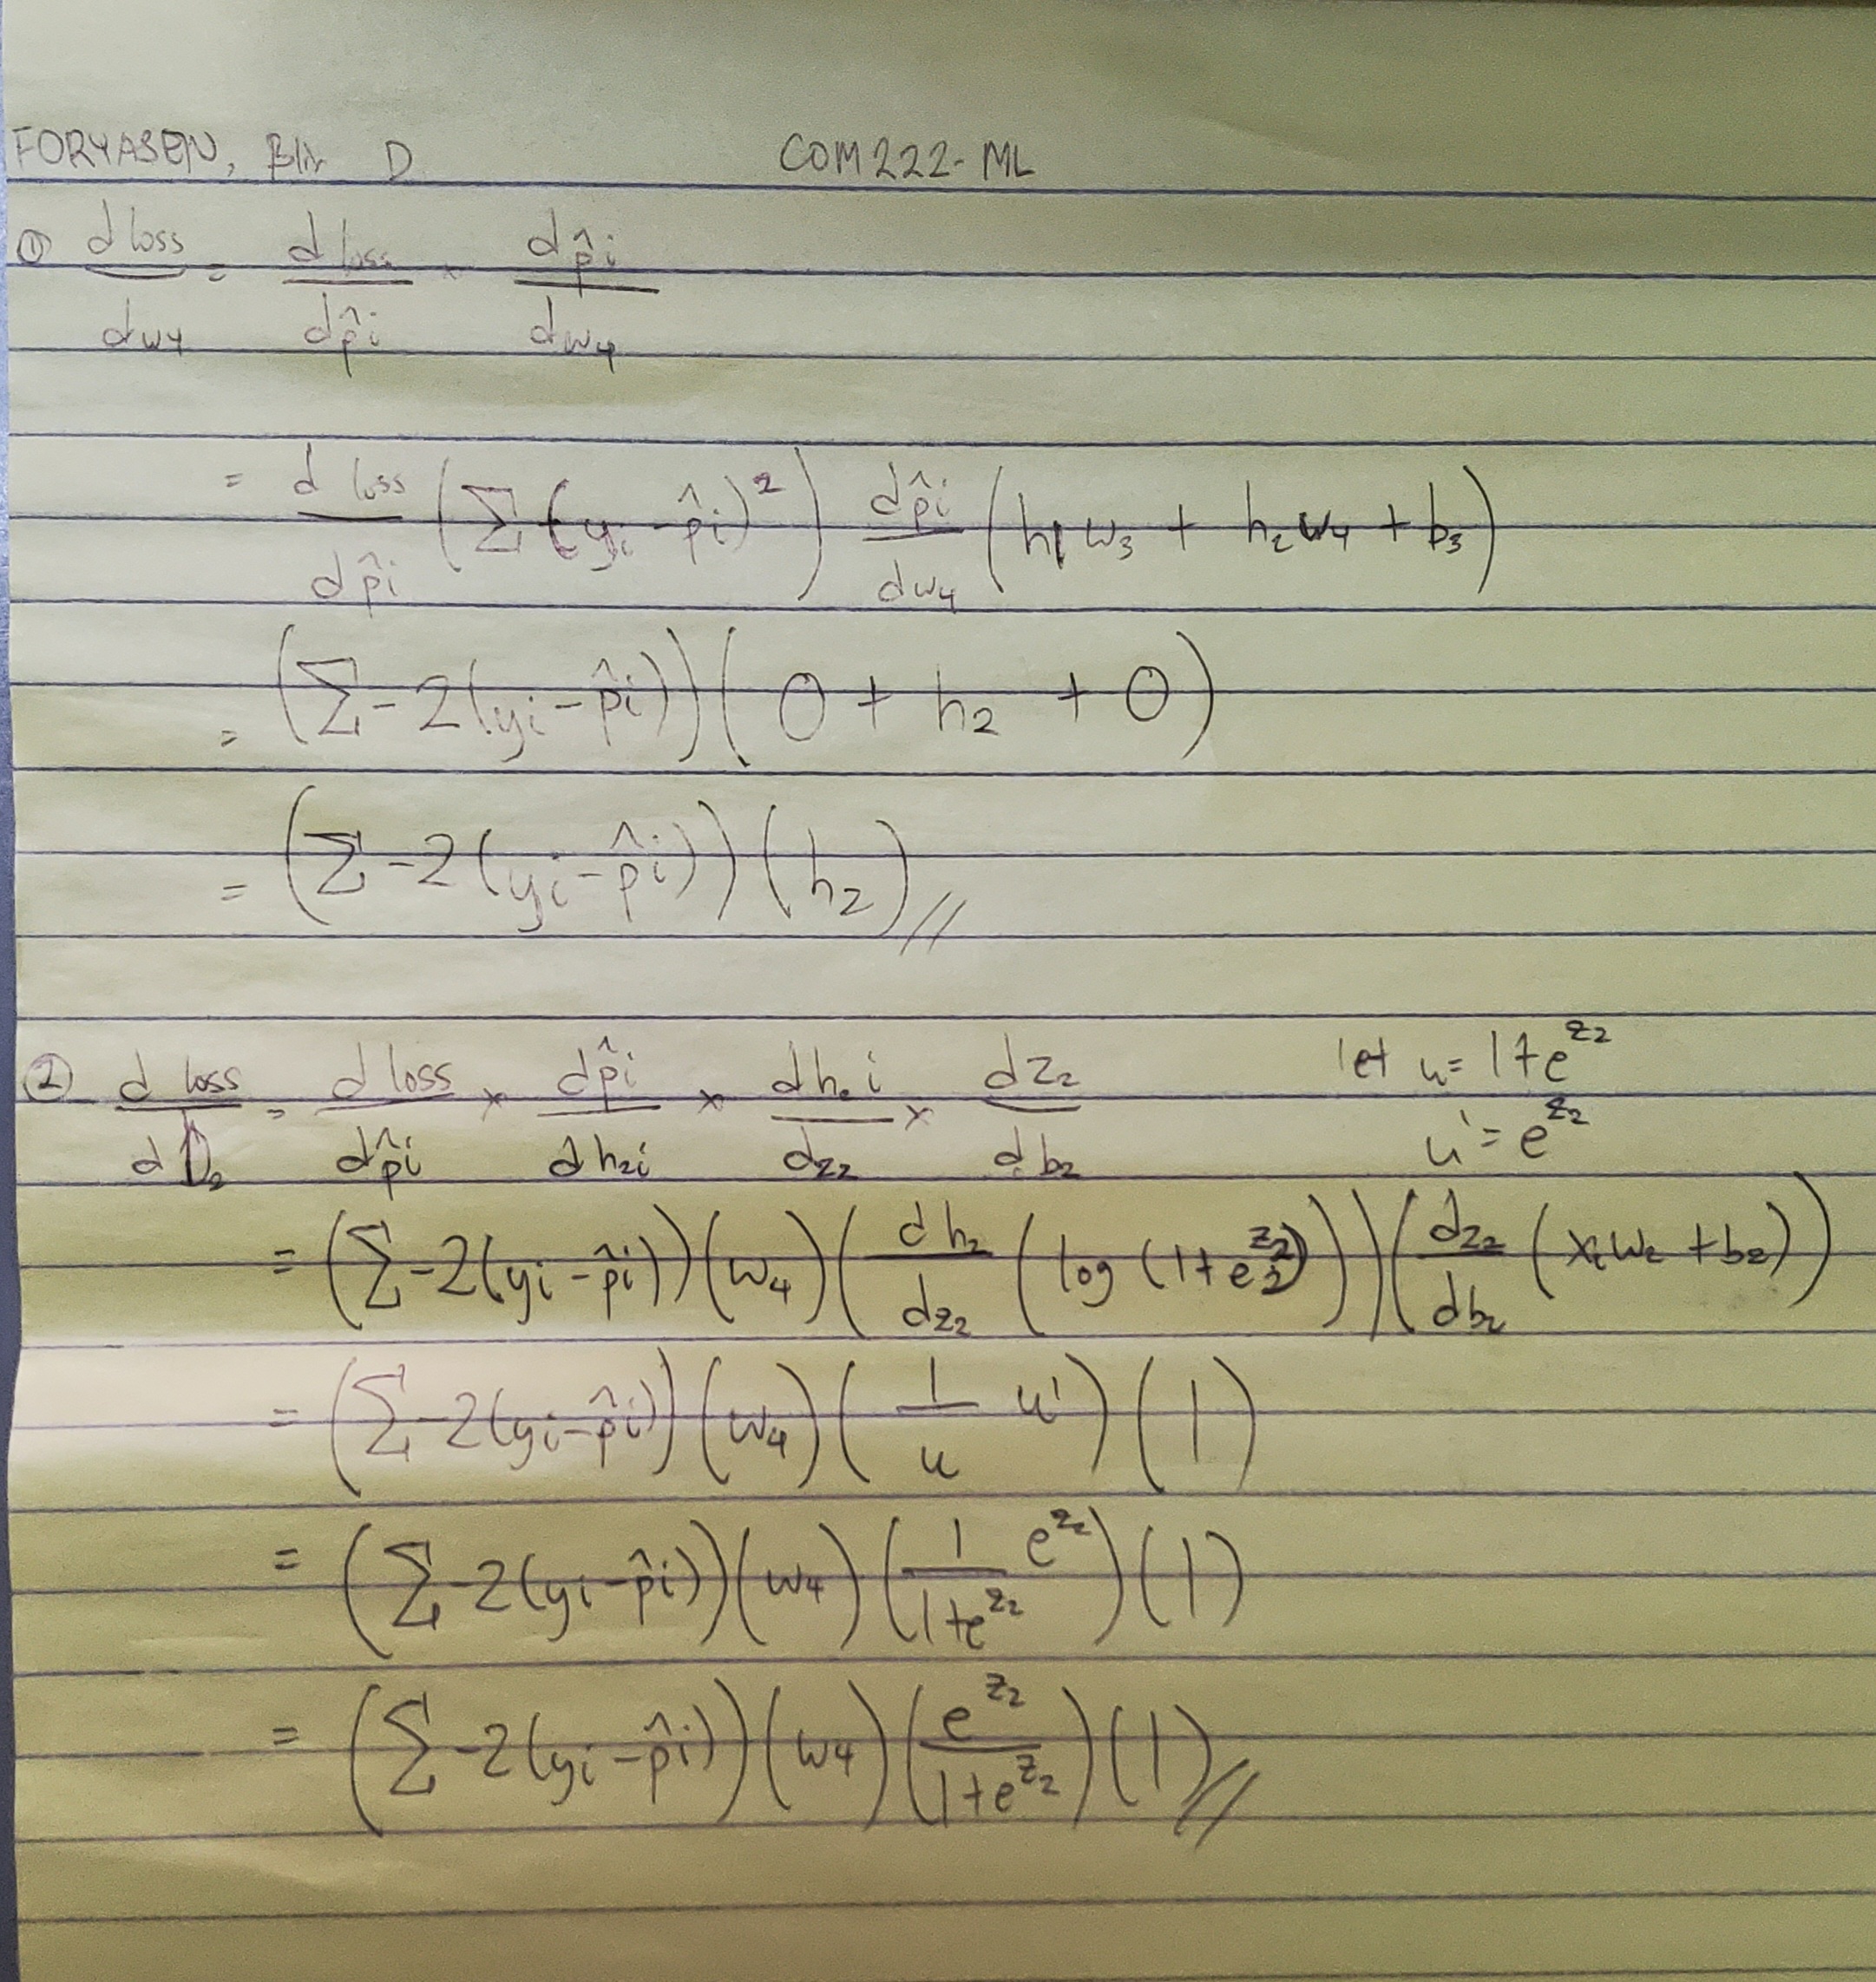 FORYASEN, Blir D COM222- ML
① d loss / dw4 = d loss / dp̂i × dp̂i / dw4
= d loss / dp̂i (Σ (yi - p̂i)²) dp̂i / dw4 (h1 w3 + h2 w4 + b3)
= (Σ -2(yi - p̂i)) (0 + h2 + 0)
= (Σ -2(yi - p̂i)) (h2) //
② d loss / d b2 = d loss / dp̂i × dp̂i / dh2i × dh2i / dz2 × dz2 / db2 let u = 1+e^z2
u' = e^z2
= (Σ -2(yi - p̂i)) (w4) (dh2 / dz2 (log (1+e^z2))) (dz2 / db2 (xi w2 + b2))
= (Σ -2(yi - p̂i)) (w4) (1 / u u') (1)
= (Σ -2(yi - p̂i)) (w4) (1 / 1+e^z2 e^z2) (1)
= (Σ -2(yi - p̂i)) (w4) (e^z2 / 1+e^z2) (1) //